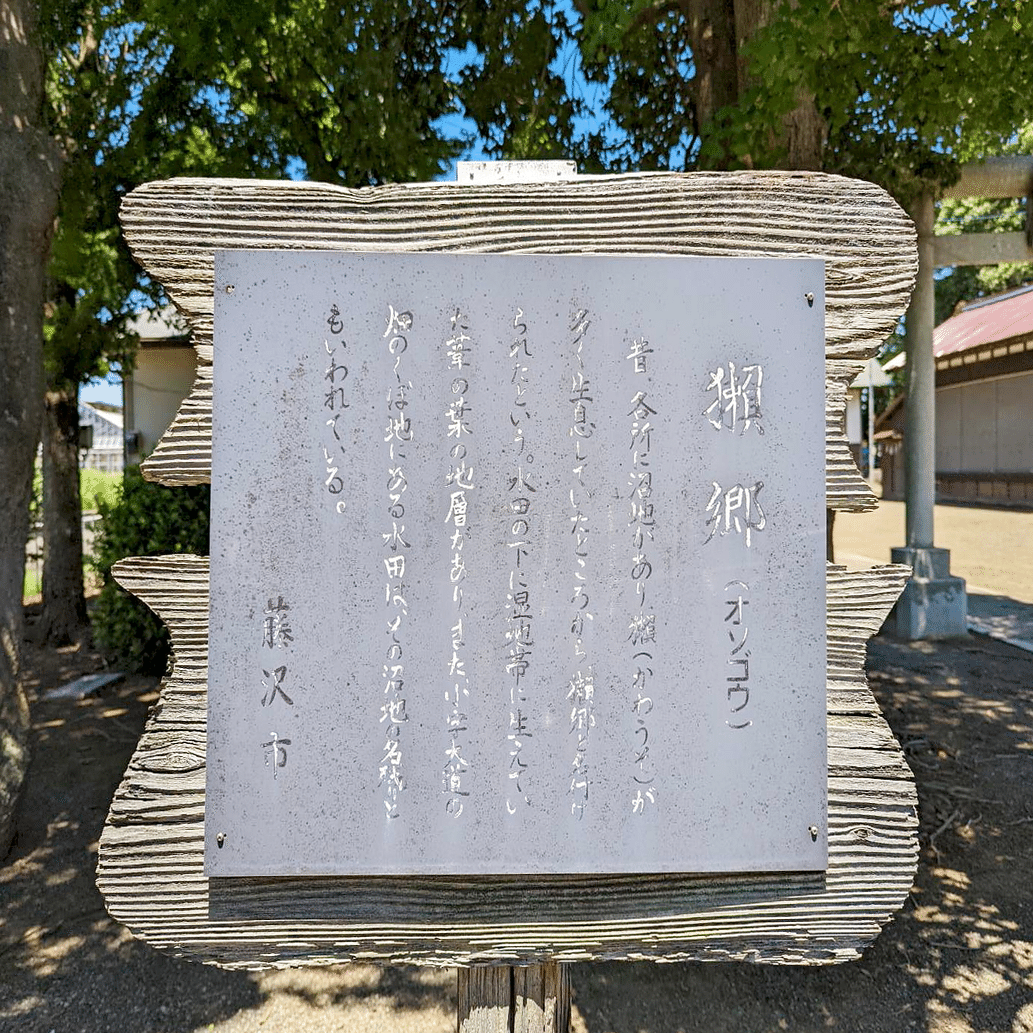 獺郷(オゾゴウ)
昔、各所に沼地があり獺(かわうそ)が
多く生息していたところから獺郷と名付け
られたという。水田の下に湿地帯に生えてい
た葦の葉の地層があり、また小字大道の
畑のくぼ地にある水田は、その沼地の名残りと
もいわれている。
藤沢市